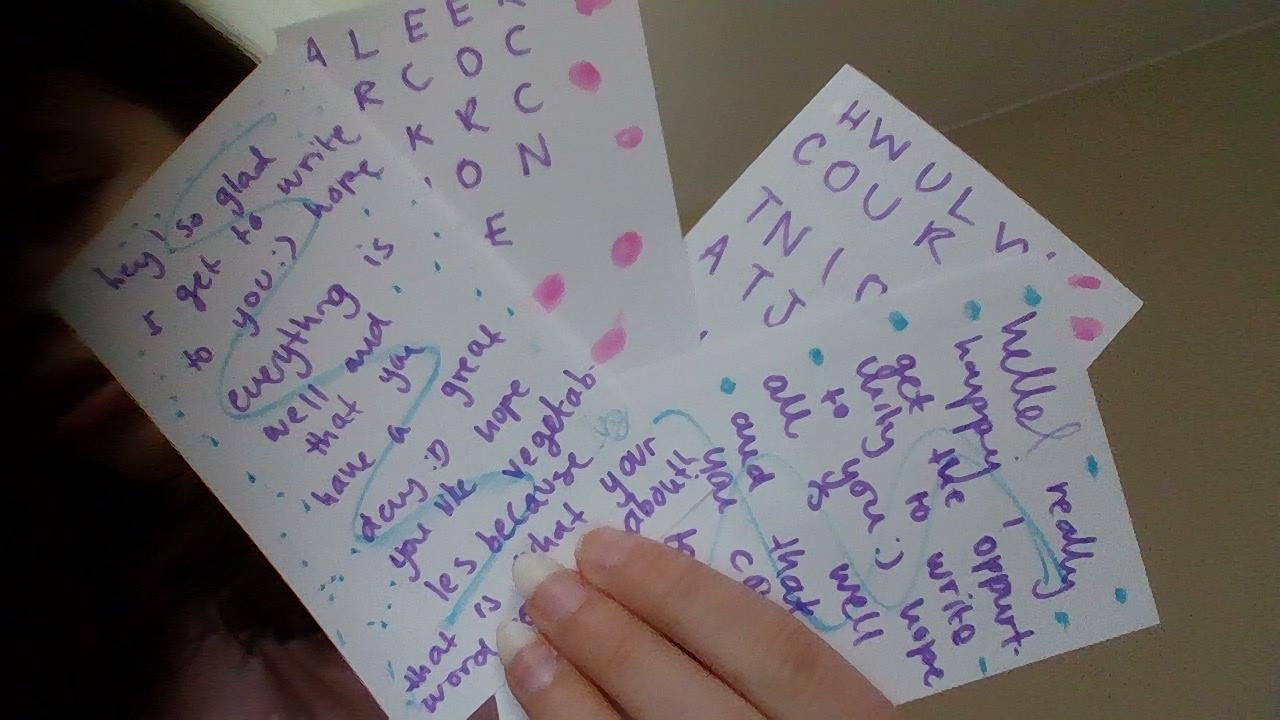 A L E E
R C O C
K R C
O N
E
hey! so glad
I get to write
to you :) hope
everything is
well and
that you
have a great
day :D hope
you like vegetab-
les because
that is what your
word is about!!
H W U L S
C O U R
T N I S
A T J
hello! really
happy I
get the opport-
unity to write
to you :) hope
all is well
and that
you
to